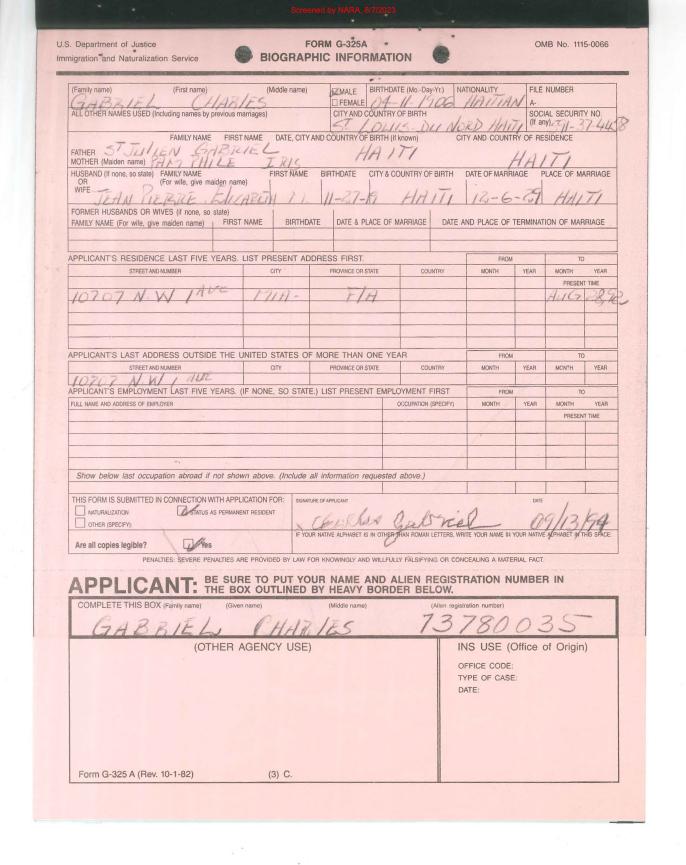 Screened by NARA, 8/7/2023
U.S. Department of Justice
Immigration and Naturalization Service
FORM G-325A
BIOGRAPHIC INFORMATION
OMB No. 1115-0066
(Family name) (First name) (Middle name)
GABRIEL CHARLES
MALE
FEMALE
BIRTHDATE (Mo.-Day-Yr.)
04-11-1906
NATIONALITY
HAITIAN
FILE NUMBER
A-
ALL OTHER NAMES USED (Including names by previous marriages)
CITY AND COUNTRY OF BIRTH
ST. LOUIS-DU NORD HAITI
SOCIAL SECURITY NO.
(If any)
FAMILY NAME FIRST NAME DATE, CITY AND COUNTRY OF BIRTH (if known) CITY AND COUNTRY OF RESIDENCE
FATHER ST JULIEN GABRIEL HAITI
MOTHER (Maiden name) PAMPHILE IRIS HAITI
HUSBAND (If none, so state) FAMILY NAME FIRST NAME BIRTHDATE CITY & COUNTRY OF BIRTH DATE OF MARRIAGE PLACE OF MARRIAGE
OR (For wife, give maiden name)
WIFE
JEAN PIERRE 11-27-19 HAITI HAITI
FORMER HUSBANDS OR WIVES (if none, so state)
FAMILY NAME (For wife, give maiden name) FIRST NAME BIRTHDATE DATE & PLACE OF MARRIAGE DATE AND PLACE OF TERMINATION OF MARRIAGE
APPLICANT'S RESIDENCE LAST FIVE YEARS. LIST PRESENT ADDRESS FIRST. FROM TO
STREET AND NUMBER CITY PROVINCE OR STATE COUNTRY MONTH YEAR MONTH YEAR
PRESENT TIME
10707 N.W 1 AVE MIA- FlA AUG 28,92
APPLICANT'S LAST ADDRESS OUTSIDE THE UNITED STATES OF MORE THAN ONE YEAR FROM TO
STREET AND NUMBER CITY PROVINCE OR STATE COUNTRY MONTH YEAR MONTH YEAR
10707 N.W 1 AVE
APPLICANT'S EMPLOYMENT LAST FIVE YEARS. (IF NONE, SO STATE.) LIST PRESENT EMPLOYMENT FIRST FROM TO
FULL NAME AND ADDRESS OF EMPLOYER OCCUPATION (SPECIFY) MONTH YEAR MONTH YEAR
PRESENT TIME
Show below last occupation abroad if not shown above. (Include all information requested above.)
THIS FORM IS SUBMITTED IN CONNECTION WITH APPLICATION FOR:
NATURALIZATION STATUS AS PERMANENT RESIDENT
OTHER (SPECIFY):
SIGNATURE OF APPLICANT DATE
Charles Gabriel 09/13/94
Are all copies legible? Yes
IF YOUR NATIVE ALPHABET IS IN OTHER THAN ROMAN LETTERS, WRITE YOUR NAME IN YOUR NATIVE ALPHABET IN THIS SPACE:
PENALTIES: SEVERE PENALTIES ARE PROVIDED BY LAW FOR KNOWINGLY AND WILLFULLY FALSIFYING OR CONCEALING A MATERIAL FACT.
APPLICANT: BE SURE TO PUT YOUR NAME AND ALIEN REGISTRATION NUMBER IN
THE BOX OUTLINED BY HEAVY BORDER BELOW.
COMPLETE THIS BOX (Family name) (Given name) (Middle name) (Alien registration number)
GABRIEL CHARLES 73780035
(OTHER AGENCY USE)
INS USE (Office of Origin)
OFFICE CODE:
TYPE OF CASE:
DATE:
Form G-325 A (Rev. 10-1-82) (3) C.